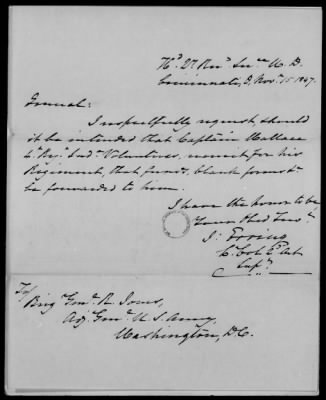 Hd. Qr. Recg Service U. S.
Cincinnati, O. Nov. 15 1847.
General:
I respectfully request, should
it be intended that Captain Wallace
4th Regt. Inda. Volunteers, recruit for his
Regiment, that funds, blank forms &c
be forwarded to him.
I have the honor to be
Your Obed Servt.
J. Erving
Supt.
To/
Brig Genl. R. Jones,
Adj. Genl. U S Army,
Washington, D.C.